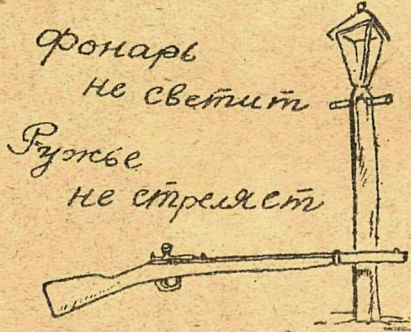 Фонарь
не светит
Ружье
не стреляет